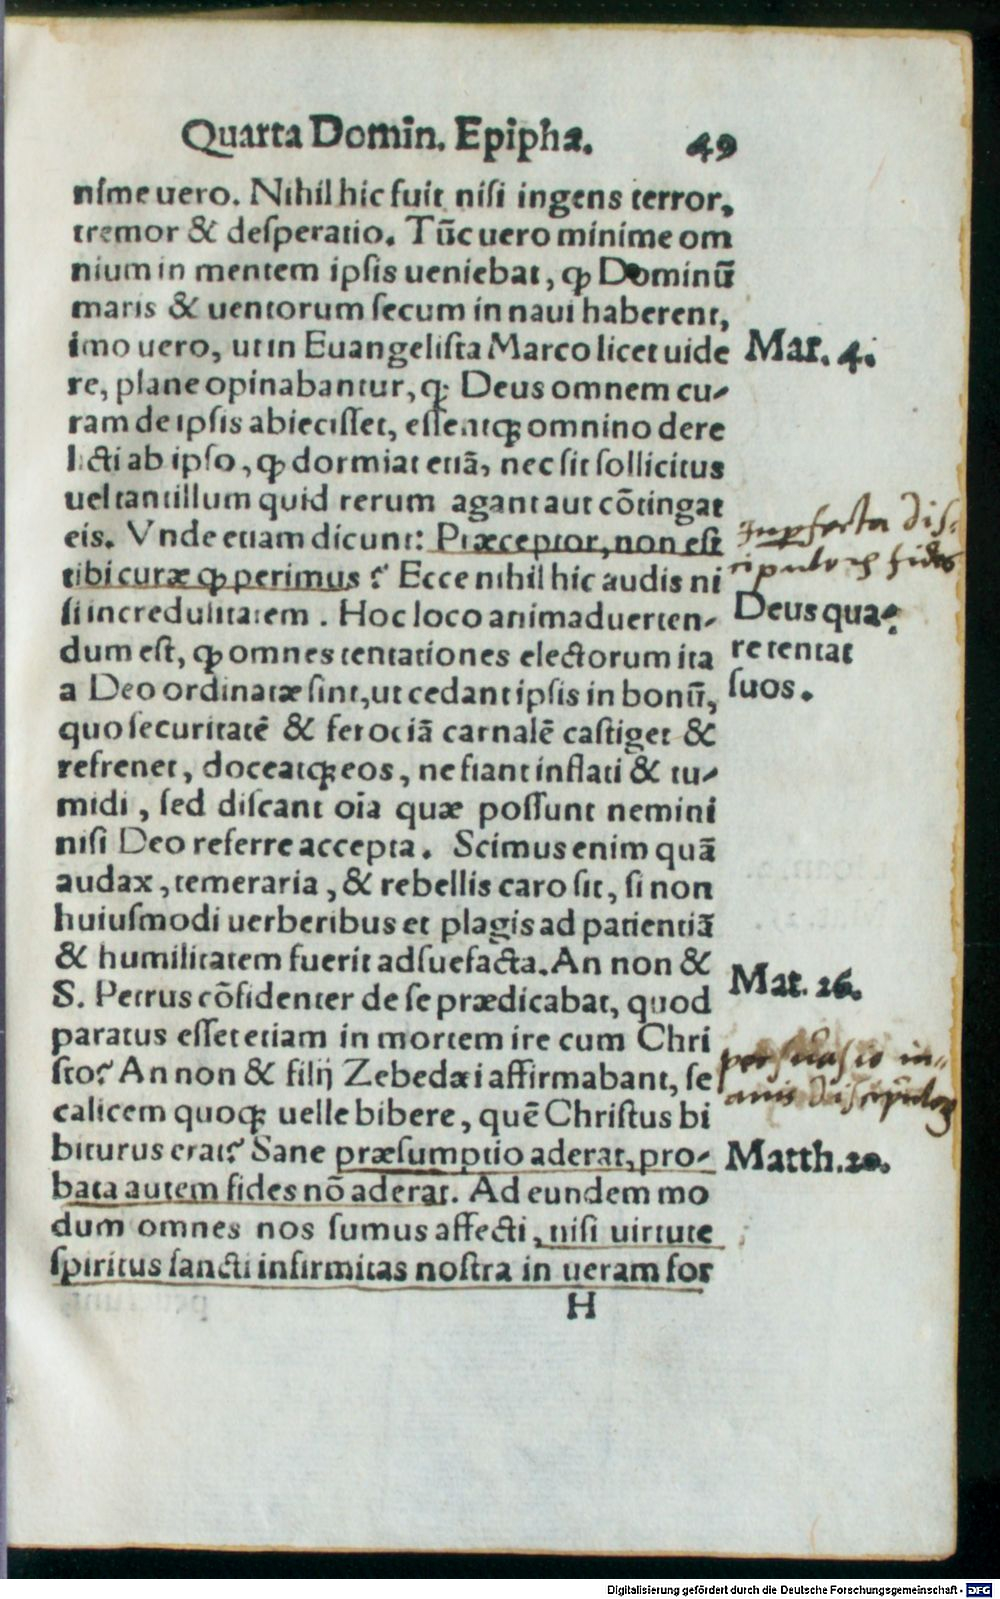 Quarta Domin. Epipha. 49
nime uero. Nihil hic fuit nisi ingens terror,
tremor & desperatio. Tūc uero minime om
nium in mentem ipsis ueniebat, ꝙ Dominū
maris & uentorum secum in naui haberent,
imo uero, ut in Euangelista Marco licet uide
Mar. 4.
re, plane opinabantur, ꝙ Deus omnem cu-
ram de ipsis abiecisset, essentꝗ; omnino dere
licti ab ipso, ꝙ dormiat etiā, nec sit sollicitus
uel tantillum quid rerum agant aut cōtingat
eis. Vnde etiam dicunt: Præceptor, non est
Imꝑfecta dis-
tibi curæ ꝙ perimus? Ecce nihil hic audis ni
cipuloꝝ fides
si incredulitatem. Hoc loco animaduerten-
Deus qua-
dum est, ꝙ omnes tentationes electorum ita
re tentat
a Deo ordinatæ sint, ut cedant ipsis in bonū,
suos.
quo securitatē & ferociā carnalē castiget &
refrenet, doceatꝗ; eos, ne fiant inflati & tu-
midi, sed discant oīa quæ possunt nemini
nisi Deo referre accepta. Scimus enim quā
audax, temeraria, & rebellis caro sit, si non
huiusmodi uerberibus et plagis ad patientiā
& humilitatem fuerit adsuefacta. An non &
Mat. 26.
S. Petrus cōfidenter de se prædicabat, quod
paratus esset etiam in mortem ire cum Chri
persuasio in-
sto? An non & filij Zebedæi affirmabant, se
anis discipuloꝝ
calicem quoꝗ; uelle bibere, quē Christus bi
biturus erat? Sane præsumptio aderat, pro-
Matth. 20.
bata autem fides nō aderat. Ad eundem mo
dum omnes nos sumus affecti, nisi uirtute
spiritus sancti infirmitas nostra in ueram for
H
Digitalisierung gefördert durch die Deutsche Forschungsgemeinschaft - DFG